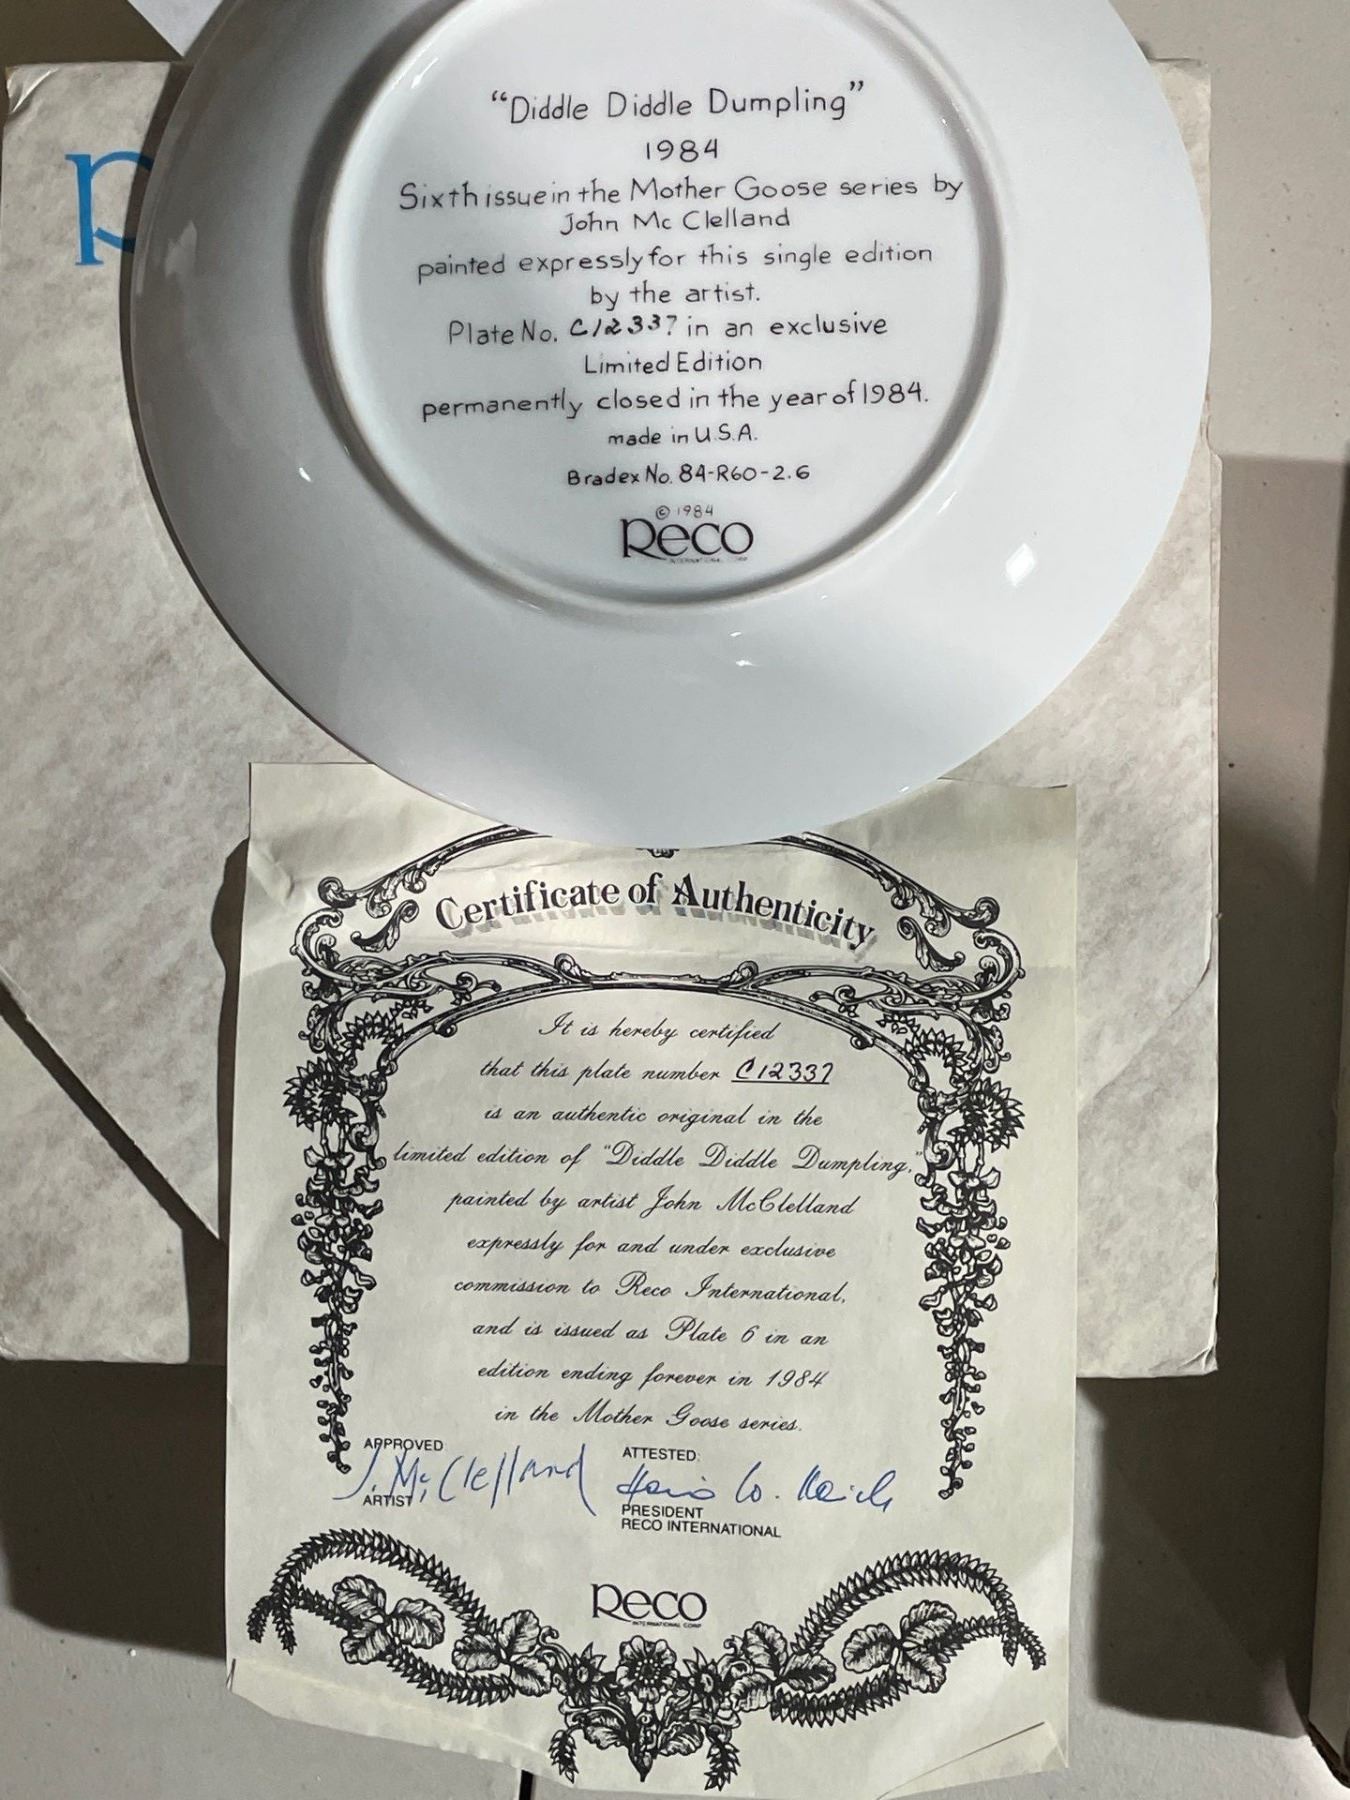 “Diddle Diddle Dumpling”
1984
Sixth issue in the Mother Goose series by
John Mc Clelland
painted expressly for this single edition
by the artist.
Plate No. C12337 in an exclusive
Limited Edition
permanently closed in the year of 1984.
made in U.S.A.
Bradex No. 84-R60-2.6
© 1984
Reco
INTERNATIONAL CORP
Certificate of Authenticity
It is hereby certified
that this plate number C12337
is an authentic original in the
limited edition of “Diddle Diddle Dumpling,”
painted by artist John McClelland
expressly for and under exclusive
commission to Reco International,
and is issued as Plate 6 in an
edition ending forever in 1984
in the Mother Goose series.
APPROVED
J. McClelland
ARTIST
ATTESTED:
PRESIDENT
RECO INTERNATIONAL
Reco
INTERNATIONAL CORP